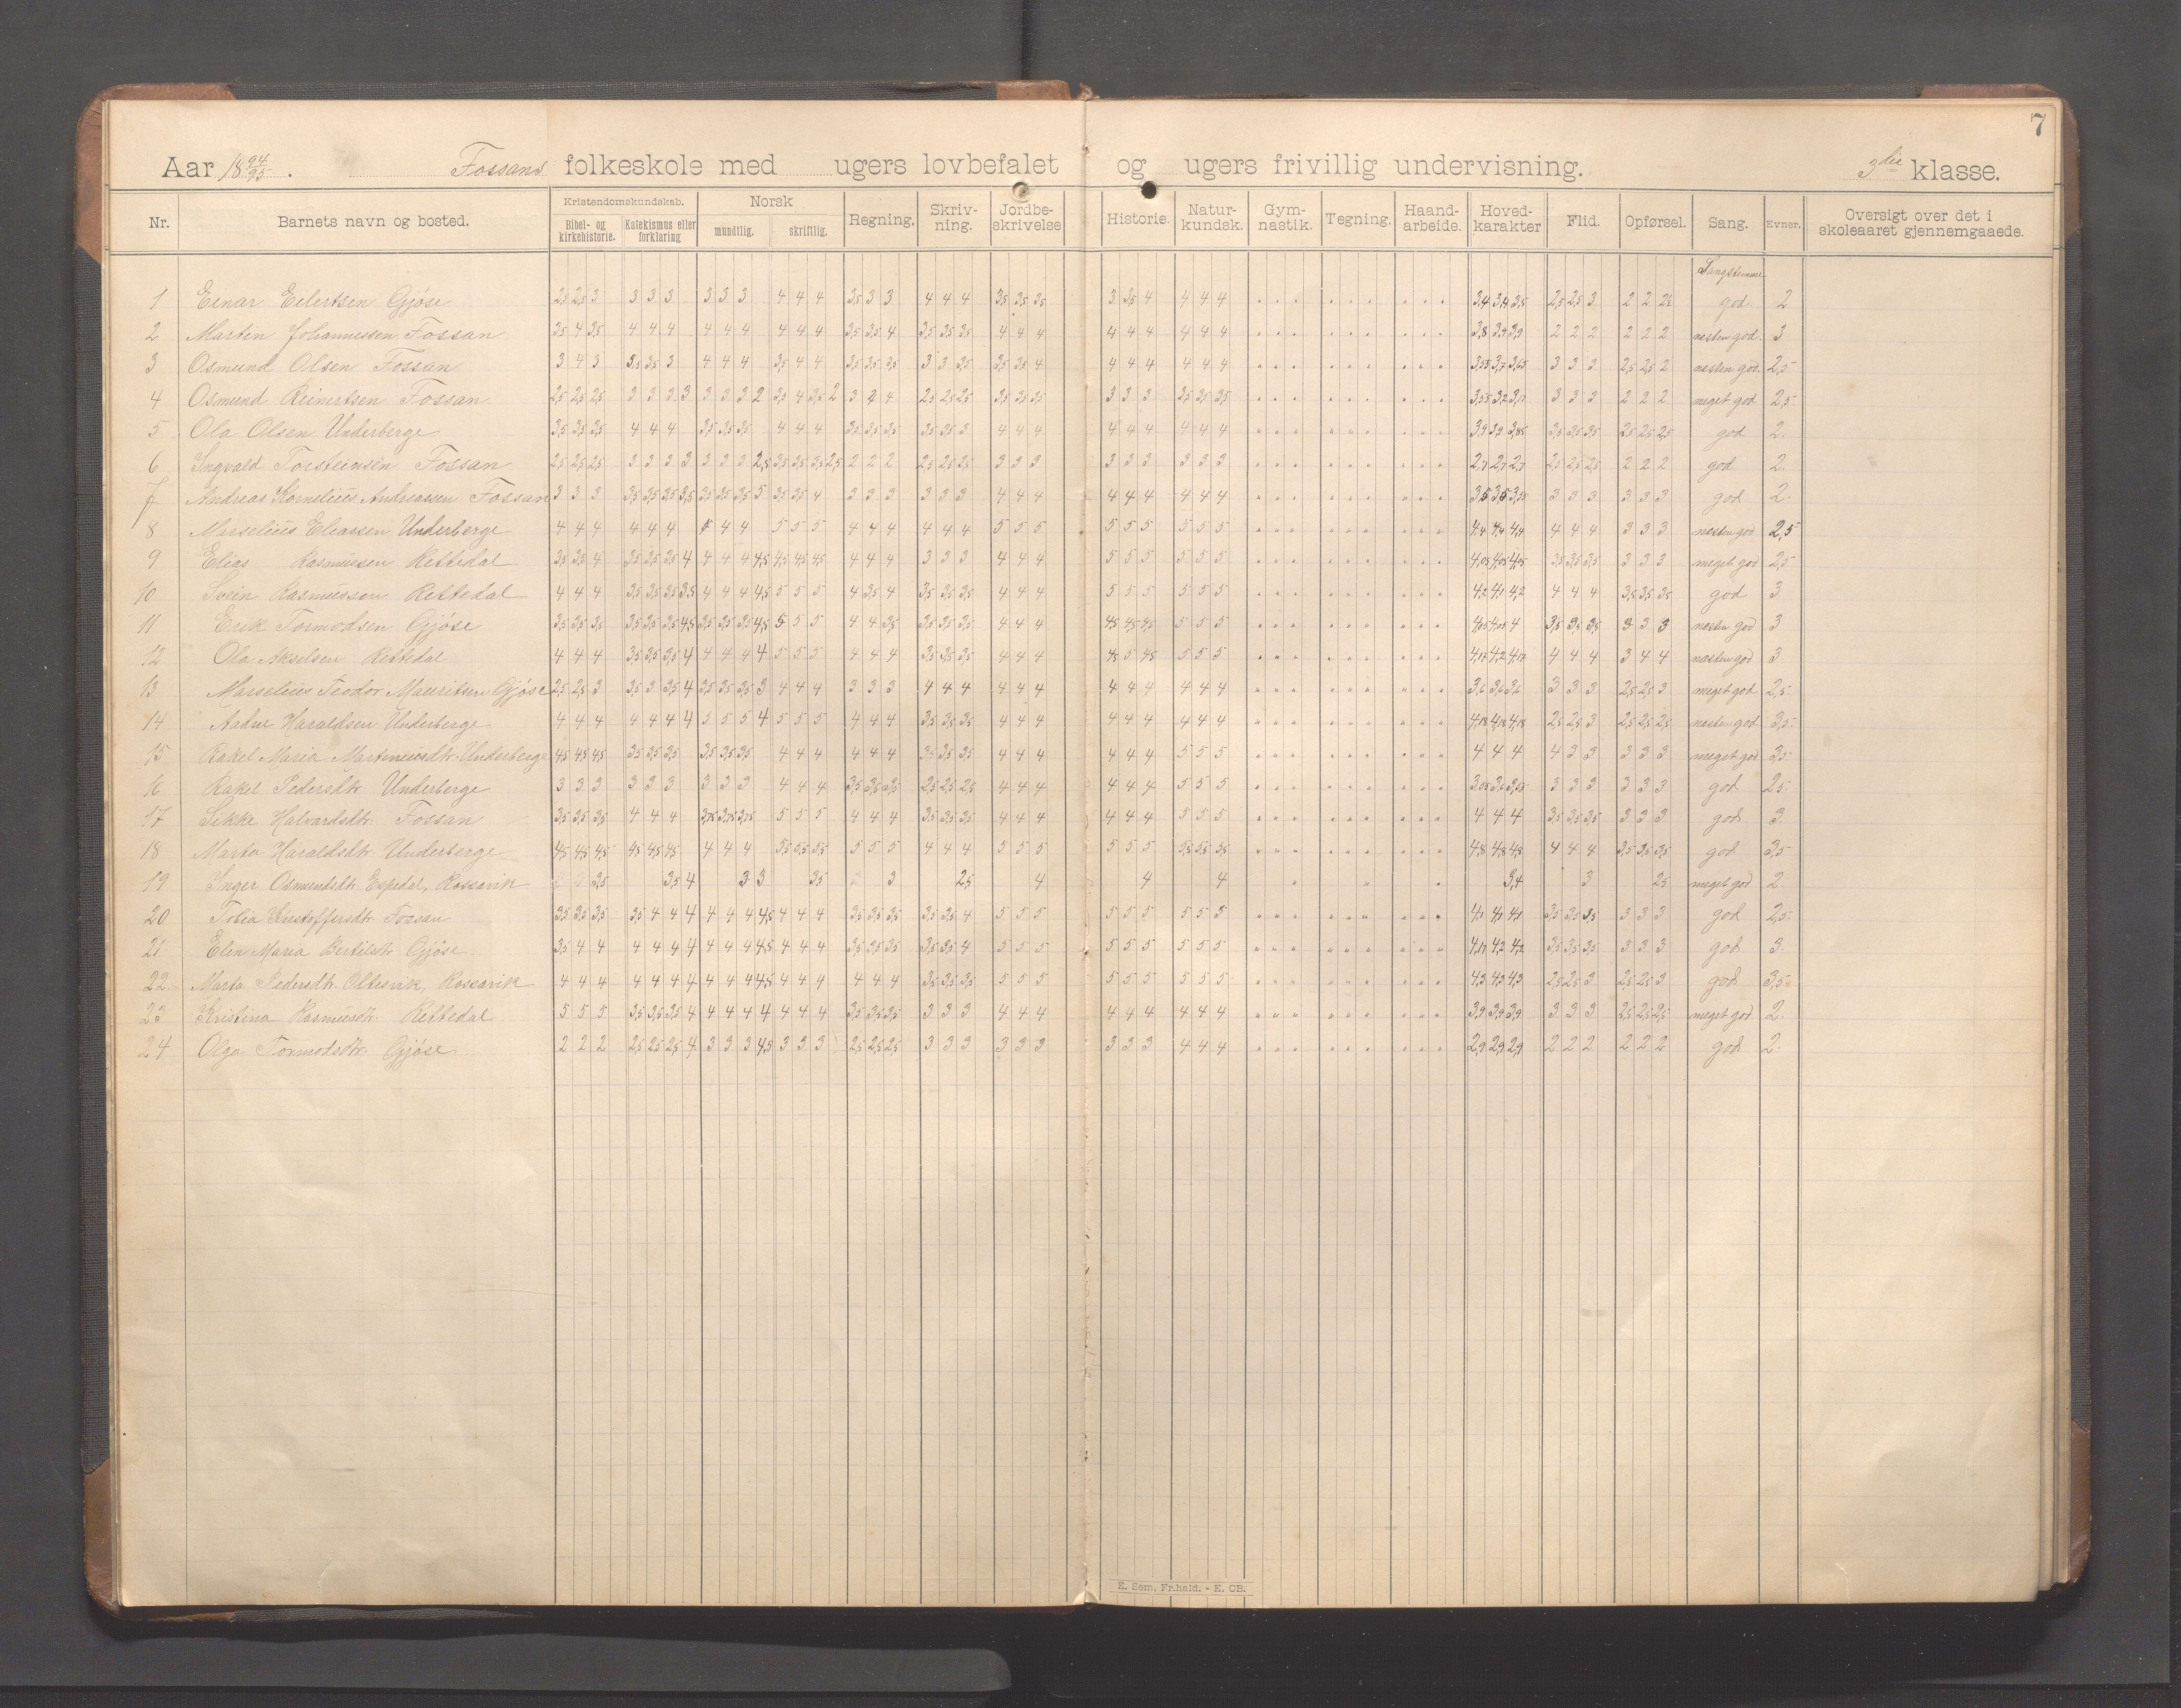 7
Aar 18 94/95. Fossans folkeskole med ugers lovbefalet og ugers frivillig undervisning. 3die klasse.
Nr. Barnets navn og bosted. Kristendomskundskab. Bibel- og kirkehistorie. Katekismus eller forklaring Norsk mundtlig. skriftlig. Regning. Skriv-ning. Jordbe-skrivelse Historie. Natur-kundsk. Gym-nastik. Tegning. Haand-arbeide. Hoved-karakter Flid. Opførsel. Sang. Evner. Oversigt over det i skoleaaret gjennemgaaede.
Sangstemme
1 Einar Eilertsen Gjöse 2,5 2,5 3 3 3 3 3 3 3 4 4 4 3,5 3 3 4 4 4 3,5 3,5 3,5 3 3,5 4 4 4 4 3,4 3,4 3,5 2,5 2,5 3 2 2 2,5 god 2
2 Martin Johannessen Fossan 3,5 4 3,5 4 4 4 4 4 4 4 4 4 3,5 3,5 4 3,5 3,5 3,5 4 4 4 4 4 4 4 4 4 3,8 3,9 3,9 2 2 2 2 2 2 nesten god. 3
3 Osmund Olsen Fossan 3 4 3 3,5 3,5 3 4 4 4 3,5 4 4 3,5 3,5 3,5 3 3 3,5 3,5 3,5 4 4 4 4 4 4 4 3,55 3,7 3,65 3 3 3 2,5 2,5 2 nesten god. 2,5
4 Osmund Reinertsen Fossan 2,5 2,5 2,5 3 3 3 3 3 3 3 2 3,5 4 3,5 2 3 4 4 2,5 2,5 2,5 3,5 3,5 3,5 3 3 3 3,5 3,5 3,5 3 3 3 2 2 2 meget god 2,5
5 Ola Olsen Underberge 3,5 3,5 3,5 4 4 4 3,5 3,5 3,5 4 4 4 3,5 3,5 3,5 3,5 3,5 3 4 4 4 4 4 4 4 4 4 3,9 3,9 3,85 3,5 3,5 3,5 2,5 2,5 2,5 god 2.
6 Ingvald Torsteinsen Fossan 2,5 2,5 2,5 3 3 3 3 3 3 3 2,5 3,5 3,5 3,5 2,5 2 2 2 2,5 2,5 2,5 3 3 3 3 3 3 3 3 3 2,7 2,7 2,7 2,5 2,5 2,5 2 2 2 god 2.
7 Andreas Kornelius Andreassen Fossan 3 3 3 3,5 3,5 3,5 3,5 3,5 3,5 3,5 5 3,5 3,5 4 3 3 3 3 3 3 4 4 4 4 4 4 4 4 4 3,5 3,5 3,55 3 3 3 3 3 3 god 2.
8 Marselius Eliassen Underberge 4 4 4 4 4 4 4 4 4 5 5 5 4 4 4 4 4 4 5 5 5 5 5 5 5 5 5 4,4 4,4 4,4 4 4 4 3 3 3 nesten god 2,5
9 Elias Rasmussen Rettedal 3,5 3,5 4 3,5 3,5 3,5 4 4 4 4 4,5 4,5 4,5 4,5 4 4 4 3 3 3 4 4 4 5 5 5 5 5 5 4,05 4,05 4,05 3,5 3,5 3,5 3 3 3 meget god 2,5
10 Svein Rasmussen Rettedal 4 4 4 3,5 3,5 3,5 3,5 4 4 4 4,5 5 5 5 4 3,5 4 3,5 3,5 3,5 4 4 4 5 5 5 5 5 5 4,2 4,1 4,2 4 4 4 3,5 3,5 3,5 god 3
11 Erik Tormodsen Gjöse 3,5 3,5 3,5 3,5 3,5 3,5 4,5 3,5 3,5 3,5 4,5 5 5 5 4 4 3,5 3,5 3,5 3,5 4 4 4 4,5 4,5 4,5 5 5 5 4,05 4,05 4 3,5 3,5 3,5 3 3 3 nesten god 3
12 Ola Akselsen Rettedal 4 4 4 3,5 3,5 3,5 4 4 4 4 4 5 5 5 4 4 4 3,5 3,5 3,5 4 4 4 4,5 5 4,5 5 5 5 4,17 4,2 4,17 4 4 4 3 4 4 nesten god 3.
13 Marselius Teodor Mauritsen Gjöse 2,5 2,5 3 3,5 3 3,5 4 3,5 3,5 3,5 3 4 4 4 3 3 3 4 4 4 4 4 4 4 4 4 4 4 4 3,6 3,6 3,6 3 3 3 2,5 2,5 3 meget god 2,5
14 Aadne Haraldsen Underberge 4 4 4 4 4 4 4 5 5 5 4 5 5 5 4 4 4 3,5 3,5 3,5 4 4 4 4 4 4 4 4 4 4,18 4,18 4,18 2,5 2,5 3 2,5 2,5 2,5 nesten god 3,5
15 Rakel Maria Martiniusdtr. Underberge 4,5 4,5 4,5 3,5 3,5 3,5 3,5 3,5 3,5 4 4 4 4 4 4 3,5 3,5 3,5 4 4 4 4 4 4 5 5 5 4 4 4 4 3 3 3 3 3 meget god 3,5
16 Rakel Pedersdtr. Underberge 3 3 3 3 3 3 3 3 3 4 4 4 3,5 3,5 3,5 2,5 2,5 2,5 4 4 4 4 4 4 5 5 5 3,55 3,6 3,55 3 3 3 3 3 3 god 2,5
17 Sikke Halvardsdtr. Fossan 3,5 3,5 3,5 4 4 4 3,75 3,75 3,75 5 5 5 4 4 4 3,5 3,5 3,5 4 4 4 4 4 4 5 5 5 4 4 4 3,5 3,5 3,5 3 3 3 god 3.
18 Marta Haraldsdtr. Underberge 4,5 4,5 4,5 4,5 4,5 4,5 4 4 4 5,5 5,5 5,5 5 5 5 4 4 4 5 5 5 5 5 5 5,5 5,5 5,5 4,8 4,8 4,8 4 4 4 3,5 3,5 3,5 god 3,5
19 Inger Osmundsdtr. Espedal, Rossavik 3,5 3,5 4 3 3 3,5 3 2,5 4 4 4 3,4 3 2,5 meget god 2
20 Tobia Kristoffersdtr. Fossan 3,5 3,5 3,5 3,5 4 4 4 4 4 4 4,5 4 4 4 3,5 3,5 3,5 3,5 3,5 4 5 5 5 5 5 5 5 5 5 4,1 4,1 4,1 3,5 3,5 3,5 3 3 3 god 2,5
21 Elin Maria Bertilsdtr. Gjöse 3,5 4 4 4 4 4 4 4 4 4 4,5 4 4 4 3,5 3,5 3,5 3,5 3,5 4 5 5 5 5 5 5 5 5 5 4,17 4,2 4,2 3,5 3,5 3,5 3 3 3 god 3.
22 Marta Pedersdtr. Oltesvik, Rossavik 4 4 4 4 4 4 4 4 4 4 4,5 4 4 4 4 4 4 3,5 3,5 3,5 5 5 5 5 5 5 5 5 5 4,3 4,3 4,3 2,5 2,5 3 2,5 2,5 3 god 3,5
23 Kristina Rasmusdtr. Rettedal 5 5 5 3,5 3,5 3,5 4 4 4 4 4 4 4 4 3,5 3,5 3,5 3 3 3 4 4 4 4 4 4 4 4 4 3,9 3,9 3,9 3 3 3 2,5 2,5 2,5 meget god 2.
24 Olga Tormodsdtr. Gjöse 2 2 2 2,5 2,5 2,5 4 3 3 3 4,5 3 3 3 2,5 2,5 2,5 3 3 3 3 3 3 3 3 3 4 4 4 2,9 2,9 2,9 2 2 2 2 2 2 god 2.
E. Sem, Fr.hald. - E. CB.